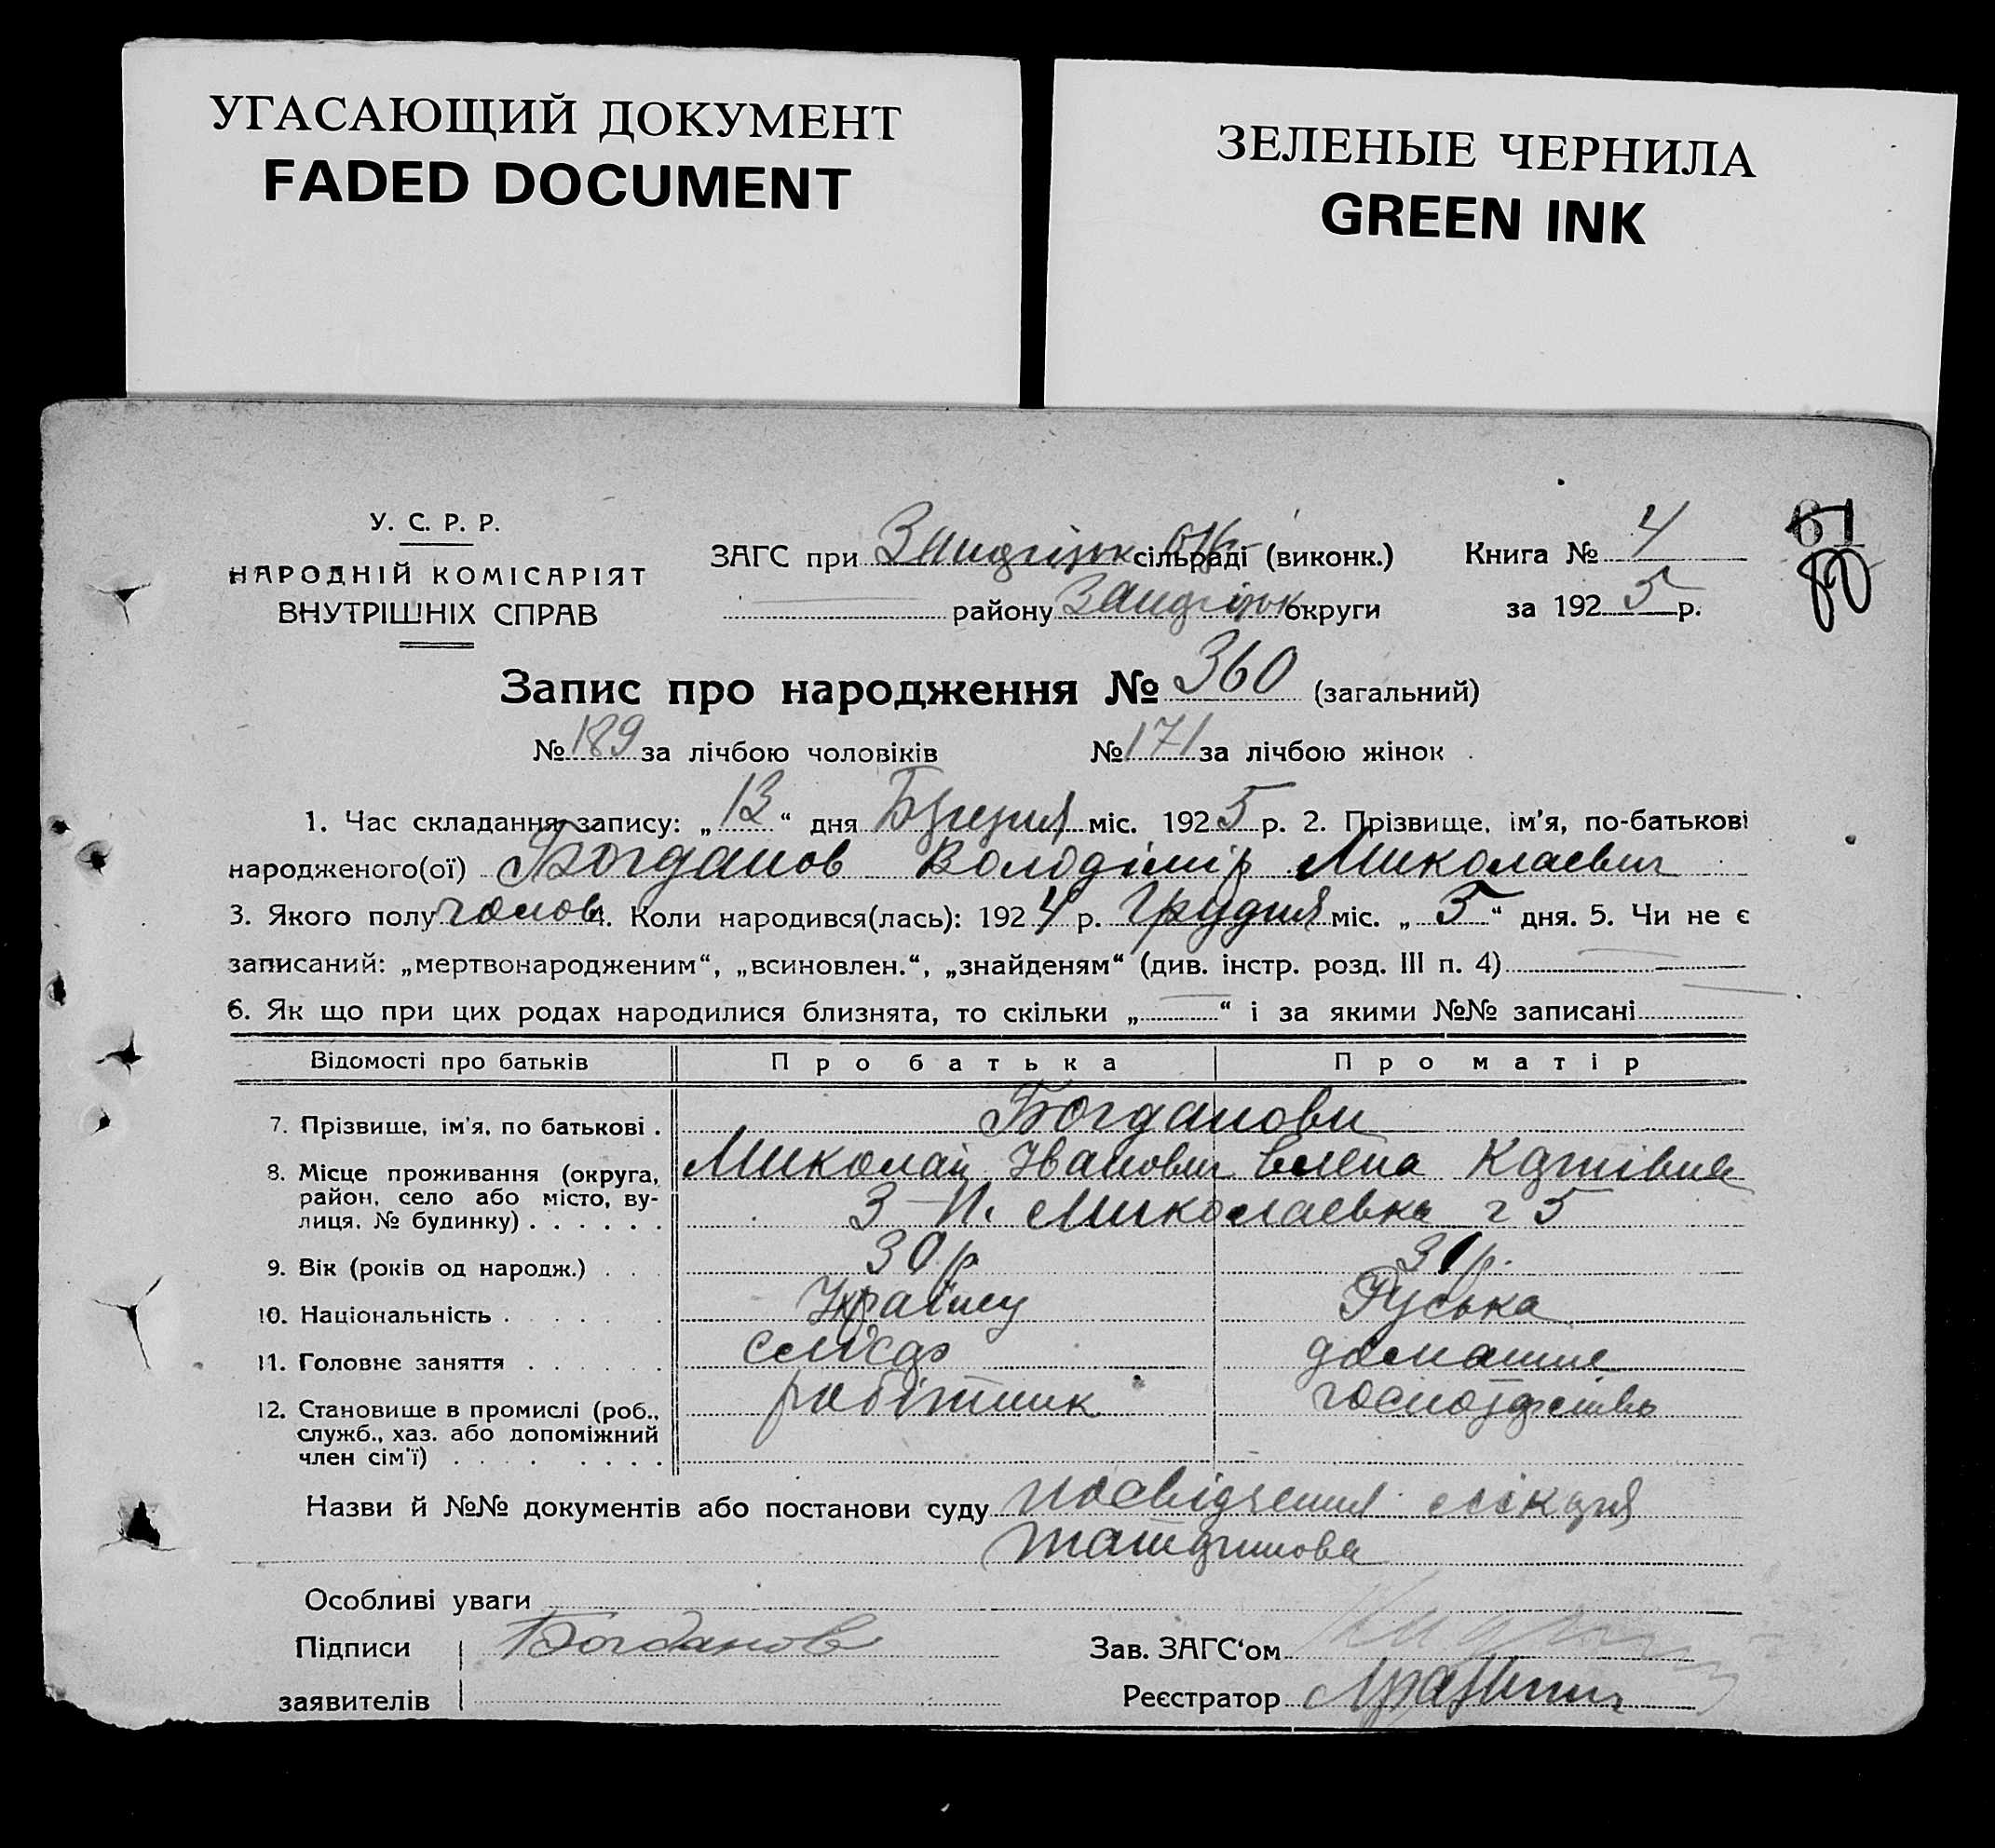 УГАСАЮЩИЙ ДОКУМЕНТ
FADED DOCUMENT
ЗЕЛЕНЫЕ ЧЕРНИЛА
GREEN INK
У. С. Р. Р.
НАРОДНІЙ КОМІСАРІЯТ
ВНУТРІШНІХ СПРАВ
ЗАГС при сільраді (виконк.)
району округи
Книга № 4
за 1925 р.
61
80
Запис про народження № 360 (загальний)
№ 189 за лічбою чоловіків № 171 за лічбою жінок
1. Час складання запису: „13“ дня Березня міс. 1925 р. 2. Прізвище, ім'я, по-батькові
народженого(ої) Богданов Володімір Миколаевич
3. Якого полу чолов 4. Коли народився(лась): 1924 р. Грудня міс. „5“ дня. 5. Чи не є
записаний: „мертвонародженим“, „всиновлен.“, „знайденям“ (див. інстр. розд. III п. 4)
6. Як що при цих родах народилися близнята, то скільки „ “ і за якими №№ записані
Відомості про батьків Про батька Про матір
7. Прізвище, ім'я, по батькові . Богданови
Миколай Іванович Елена
8. Місце проживання (округа,
район, село або місто, ву-
лиця, № будинку) . . . . . . Миколаевка 5
9. Вік (років од народж.) . . . 30 р 31 р.
10. Національність . . . . . . Українец Руська
11. Головне заняття . . . . . . слюсар домашне
12. Становище в промислі (роб.,
служб., хаз. або допоміжний
член сім'ї) . . . . . . . . робітник господарство
Назви й №№ документів або постанови суду посвідчення лікаря
Особливі уваги
Підписи Богданов Зав. ЗАГС‘ом
заявителів Реєстратор